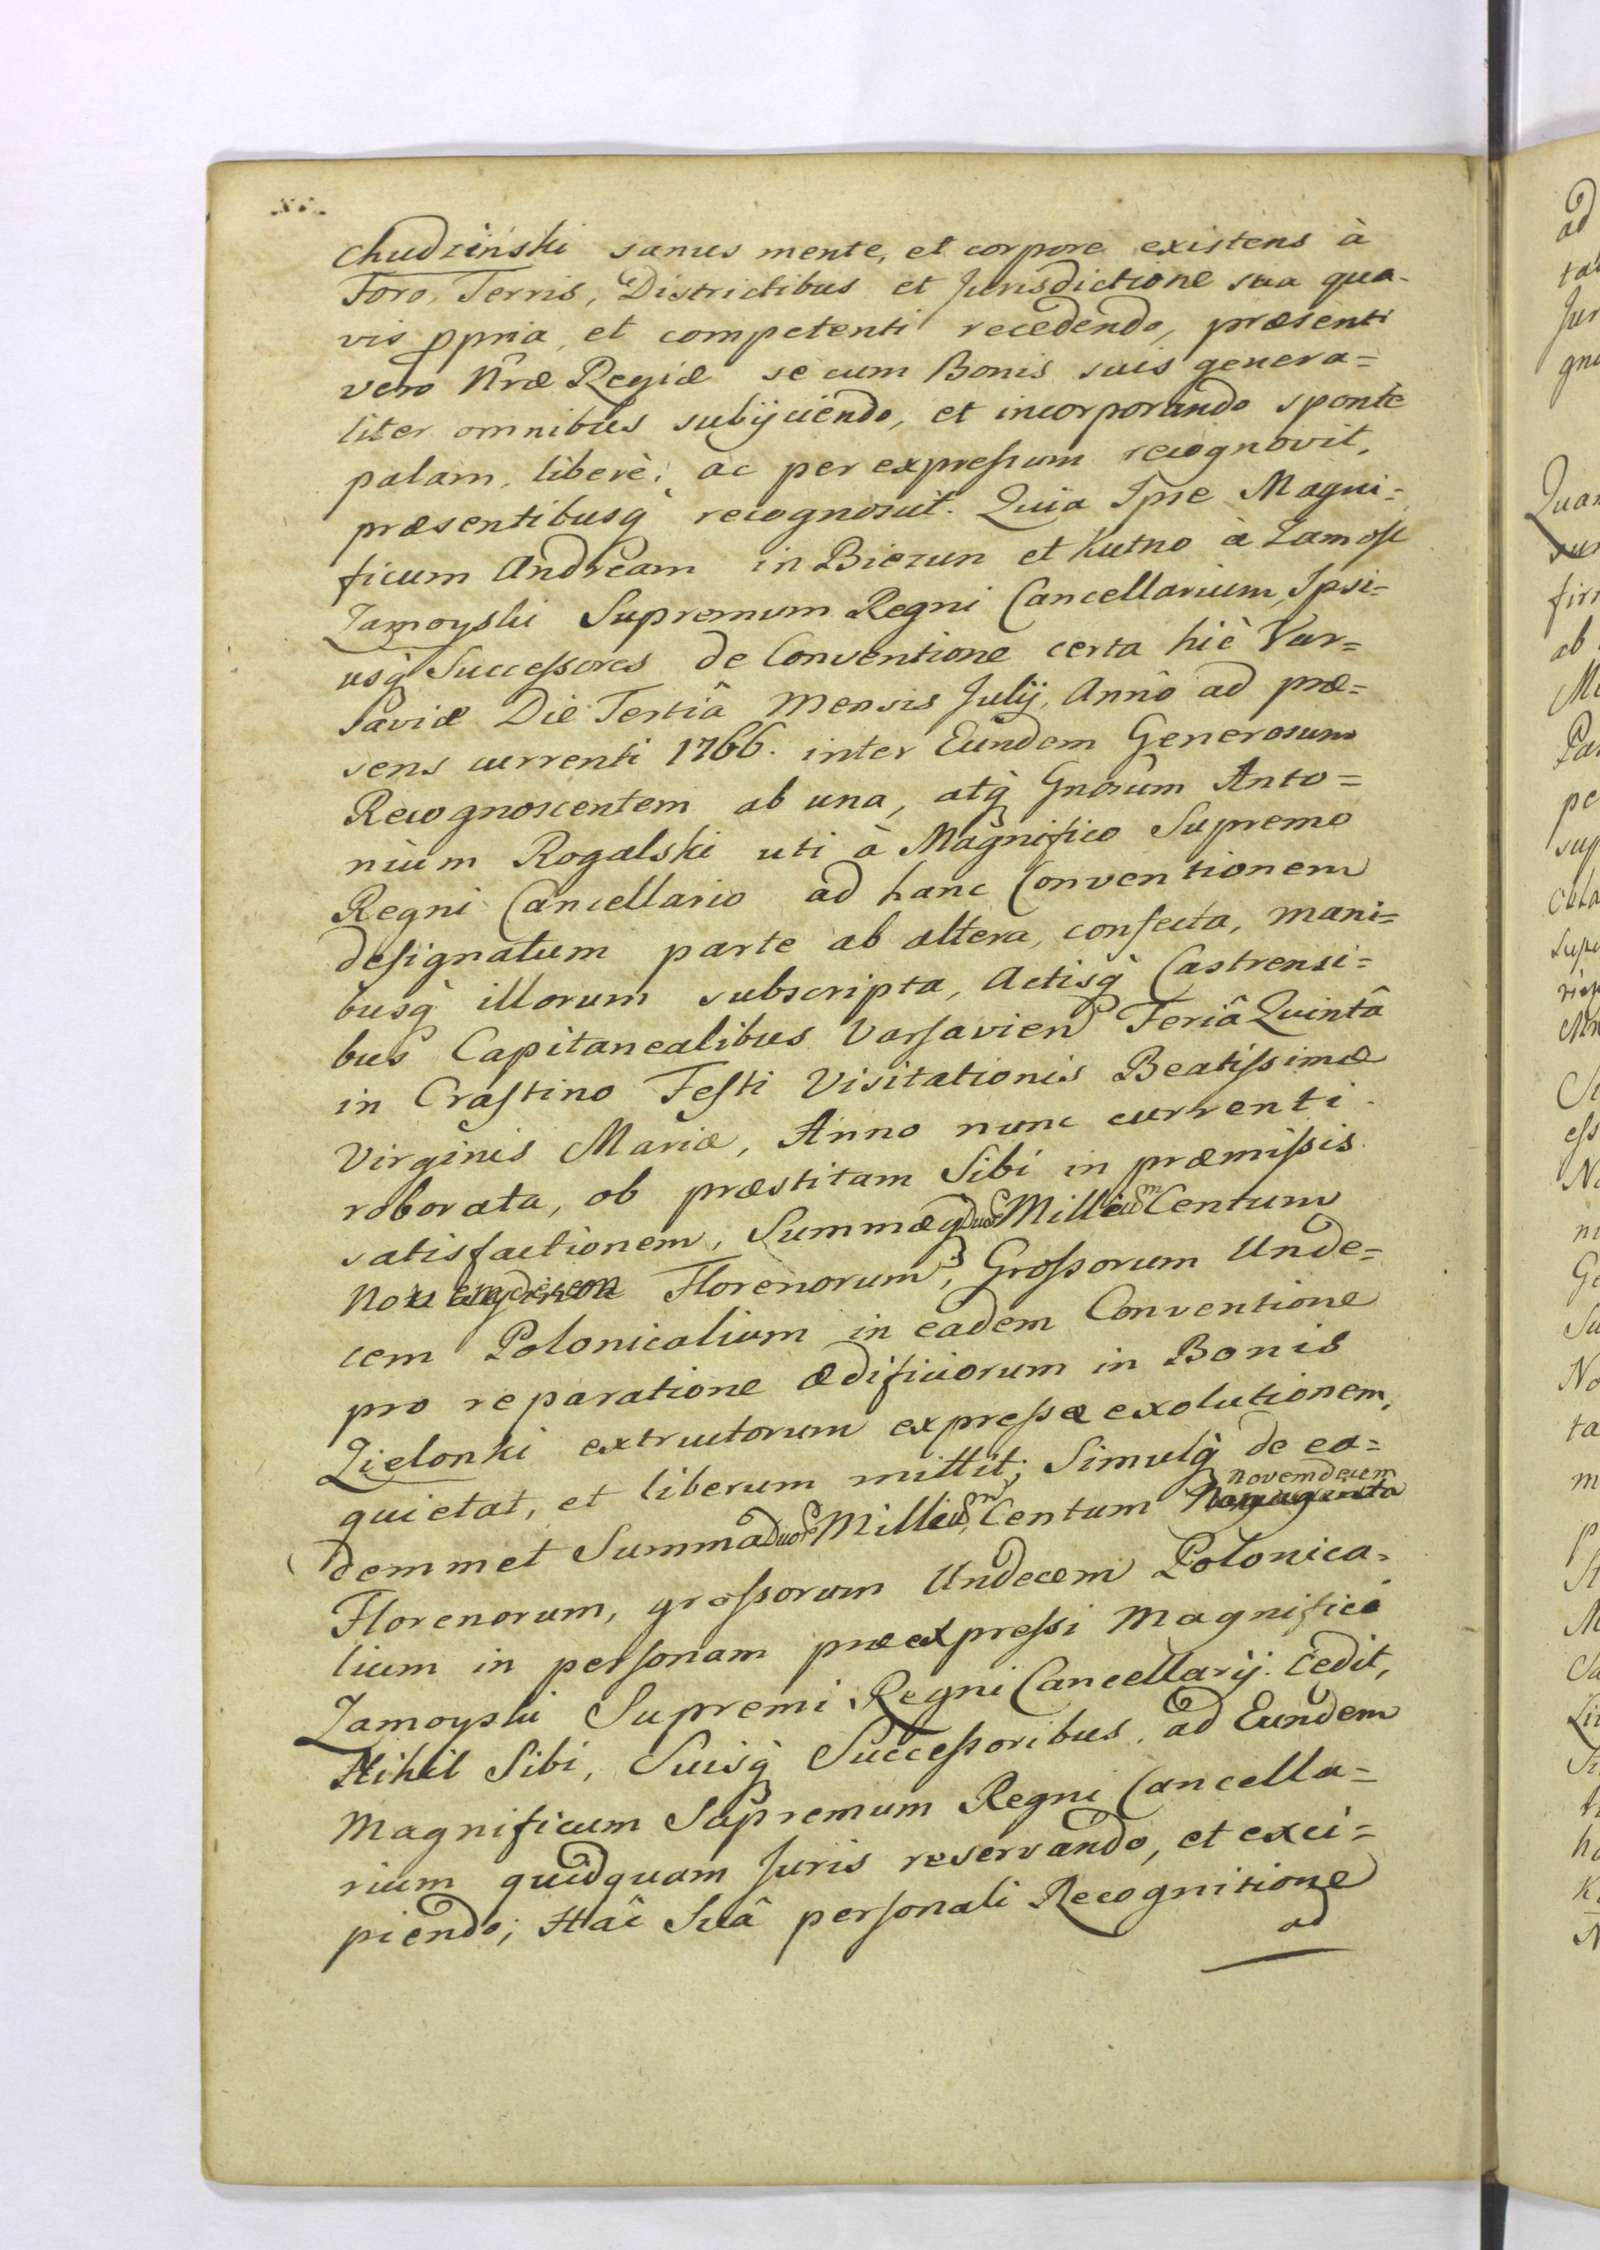 Chudzinski sanus mente, et corpore existens à
Foro, Terris, Districtibus et Jurisdictione sua qua-
vis ppria, et competenti recedendo, præsenti
vero Nræ Regiæ se cum Bonis suis genera=
liter omnibus subijciendo, et incorporando sponte
palam, liberè, ac per expreſsum recognovit,
præsentibusq̀ recognoscit. Quia Ipse Magni=
ficum Andream in Biezun et Kutno à Zamosc
Zamoyski Supremum Regni Cancellarium, Ipsi=
usq̀ Succeſsores de Conventione certa hic Var=
saviæ Die Tertiâ Mensis Julij, Anno ad præ=
sens currenti 1766. inter Eundem Generosum
Recognoscentem ab una, atq̀ Gnosum Anto=
nium Rogalski uti à Magnifico Supremo
Regni Cancellario ad hanc Conventionem
deſignatum parte ab altera, confecta, mani=
busq̀ illorum subscripta, Actisq̀ Castrensi=
bus Capitanealibus Varſavien Feriâ Quintâ
in Craſtino Feſti Visitationis Beatiſsimæ
Virginis Mariæ, Anno nunc currenti
roborata, ob præstitam Sibi in præmiſsis
satisfactionem, Summæq̀ duor Milliũm Centum
Novemdecem Florenorum, Groſsorum Unde=
cem Polonicalium in eadem Conventione
pro reparatione ædificiorum in Bonis
Zielonki extructorum expreſsæ exolutionem,
quietat, et liberum mittit; Simulq̀ de ea=
novemdecem
demmet Summa duor Milliũm, Centum Nonaginta
Florenorum, groſsorum Undecem Polonica=
lium in perſonam præexpreſsi Magnifici
Zamoyski Supremi Regni Cancellarij cedit,
Nihil Sibi, Suisq̀ Succeſsoribus, ad Eundem
Magnificum Supremum Regni Cancella=
rium quidquam Juris reservando, et exci=
piendo; Hâc Suâ perſonali Recognitione
ad